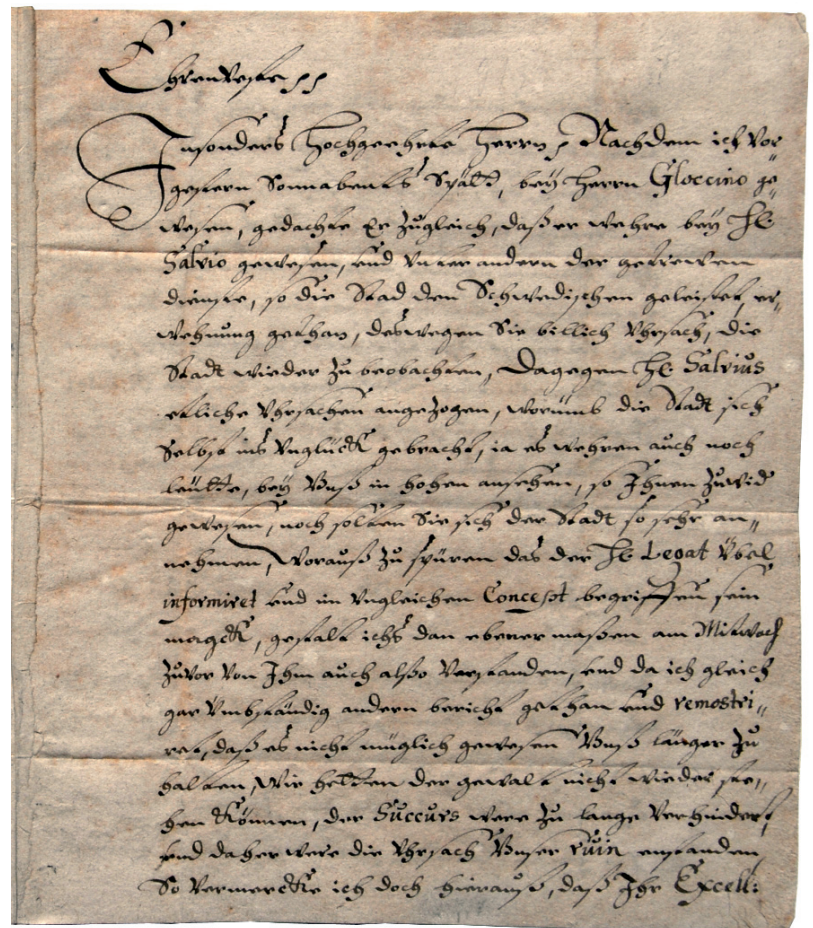 Ehrenveste pp
Insonders Hochgeehrte Herrn, Nachdem ich vor„
gestern Sonnabents Spätt, bey Herrn Gloccino ge„
wesen, gedachte Er zugleich, daß er wehre bey He
Salvio gewesen, und unter andern der getrewen
dienste, so die Stad den Schwedischen geleistet, er„
wehnung gethan, deswegen Sie billich Uhrsach, die
Stadt wieder zu beobachten, Dagegen He Salvius
etliche Uhrsachen angezogen, worümb die Stadt sich
Selbst ins Unglück gebracht, ia es wehren auch noch
leütte, bey Unß in hohen ansehen, so Ihnen zuwid
gewesen, noch solten Sie sich der Stadt so sehr an„
nehmen, Worauß zu spüren das der He Legat Übel
informiret und im Ungleichen Concept begriffen sein
magck, gestalt ichs dan ebener maßen am Mitwoch
zuvor von Ihm auch also verstanden, und da ich gleich
gar Umbständig andern bericht gethan und remostri„
ret, daß es nicht müglich gewesen Unß länger zu
halten, Wir hetten der gewalt nicht wieder ste„
hen Können, der Succurs were zu lange verhindert,
und daher were die Uhrsach Unser ruin enstanden,
So vermerckte ich doch hierauß, daß Ihr Excell: